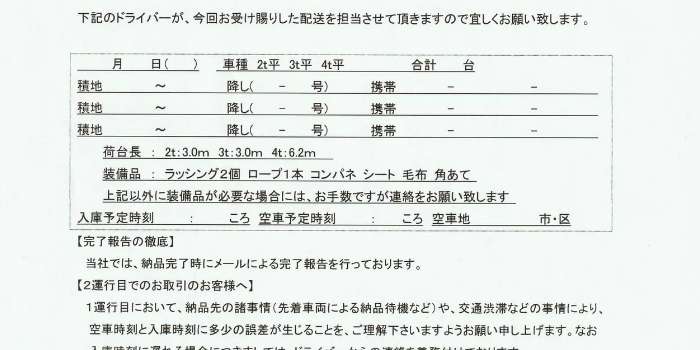 下記のドライバーが、今回お受け賜りした配送を担当させて頂きますので宜しくお願い致します。
月 日( ) 車種 2t平 3t平 4t平 合計 台
積地 ～ 降し( - 号) 携帯 - -
積地 ～ 降し( - 号) 携帯 - -
積地 ～ 降し( - 号) 携帯 - -
荷台長 : 2t:3.0m 3t:3.0m 4t:6.2m
装備品 : ラッシング2個 ロープ1本 コンパネ シート 毛布 角あて
上記以外に装備品が必要な場合には、お手数ですが連絡をお願い致します
入庫予定時刻 : ころ 空車予定時刻 : ころ 空車地 市・区
【完了報告の徹底】
当社では、納品完了時にメールによる完了報告を行っております。
【2運行目でのお取引のお客様へ】
1運行目において、納品先の諸事情(先着車両による納品待機など)や、交通渋滞などの事情により、
空車時刻と入庫時刻に多少の誤差が生じることを、ご理解下さいますようお願い申し上げます。なお